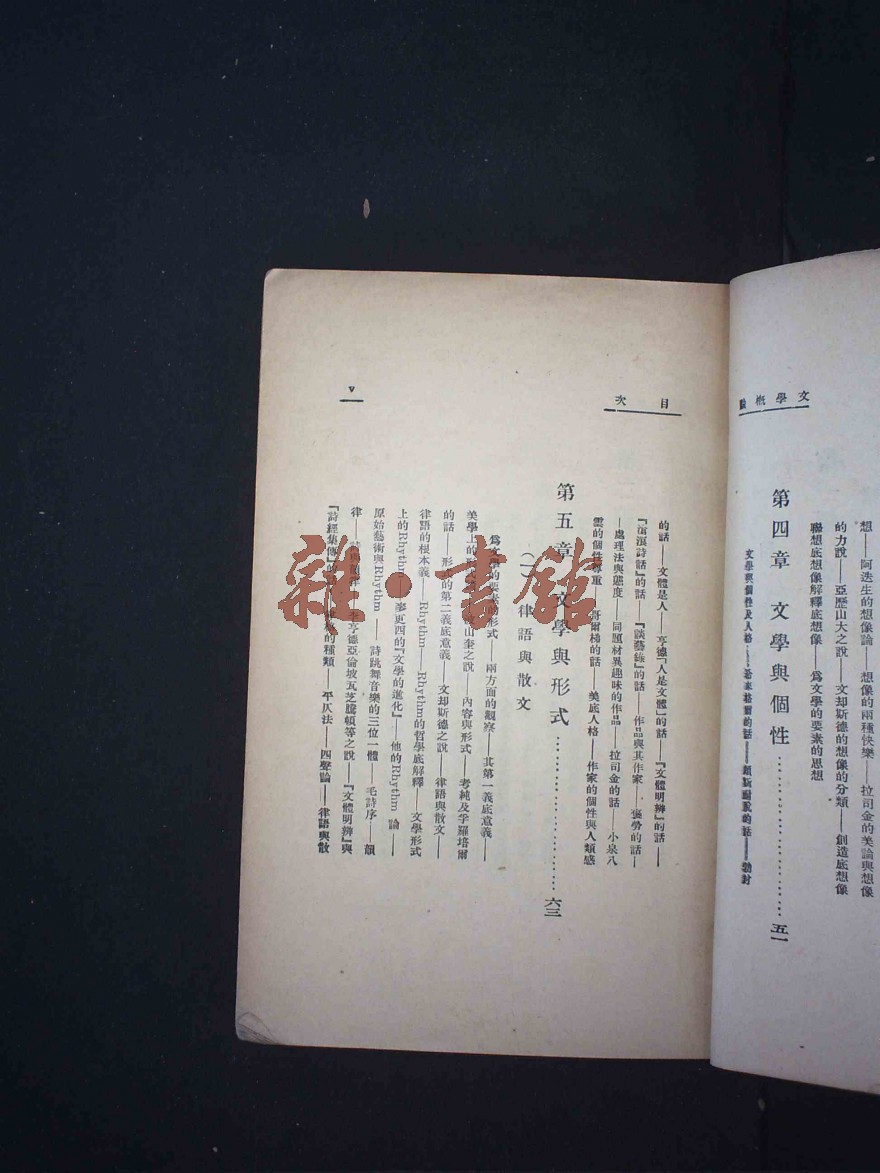 文學概論
想——阿迭生的想像論——想像的兩種快樂——拉司金的美論與想像
的力說——亞歷山大之說——文却斯德的想像的分類——創造底想像
聯想底想像解釋底想像——爲文學的要素的思想
第四章 文學與個性……………………五一
文學與個性及人格——
目次
的話——文體是人——亨德「人是文體」的話——『文體明辨』的話——
『滄浪詩話』的話——『談藝錄』的話——作品與其作家——褒勞的話——
處理法與態度——同題材異趣味的作品——拉司金的話——小泉八
雲的個性尊重——哥爾梯的話——美底人格——作家的個性與人類感
第五章 文學與形式……………………六三
(一) 律語與散文
爲文學的要素的形式——兩方面的觀察——其第一義底意義——
美學上的形 山奎之說 內容與形式——考純及乎羅培爾
的話——形式的第二義底意義——文却斯德之說——律語與散文
律語的根本義——Rhythm——Rhythm的哲學底解釋——文學形式
上的Rhythm——麥更西的『文學的進化』——他的Rhythm論——
原始藝術與Rhythm——詩跳舞音樂的三位一體——毛詩序——韻
律——亨德亞倫坡瓦芝騰頓等之說——『文體明辨』與
『詩經集傳』的 的種類——平仄法——四聲論——律語與散
v
雜·書館